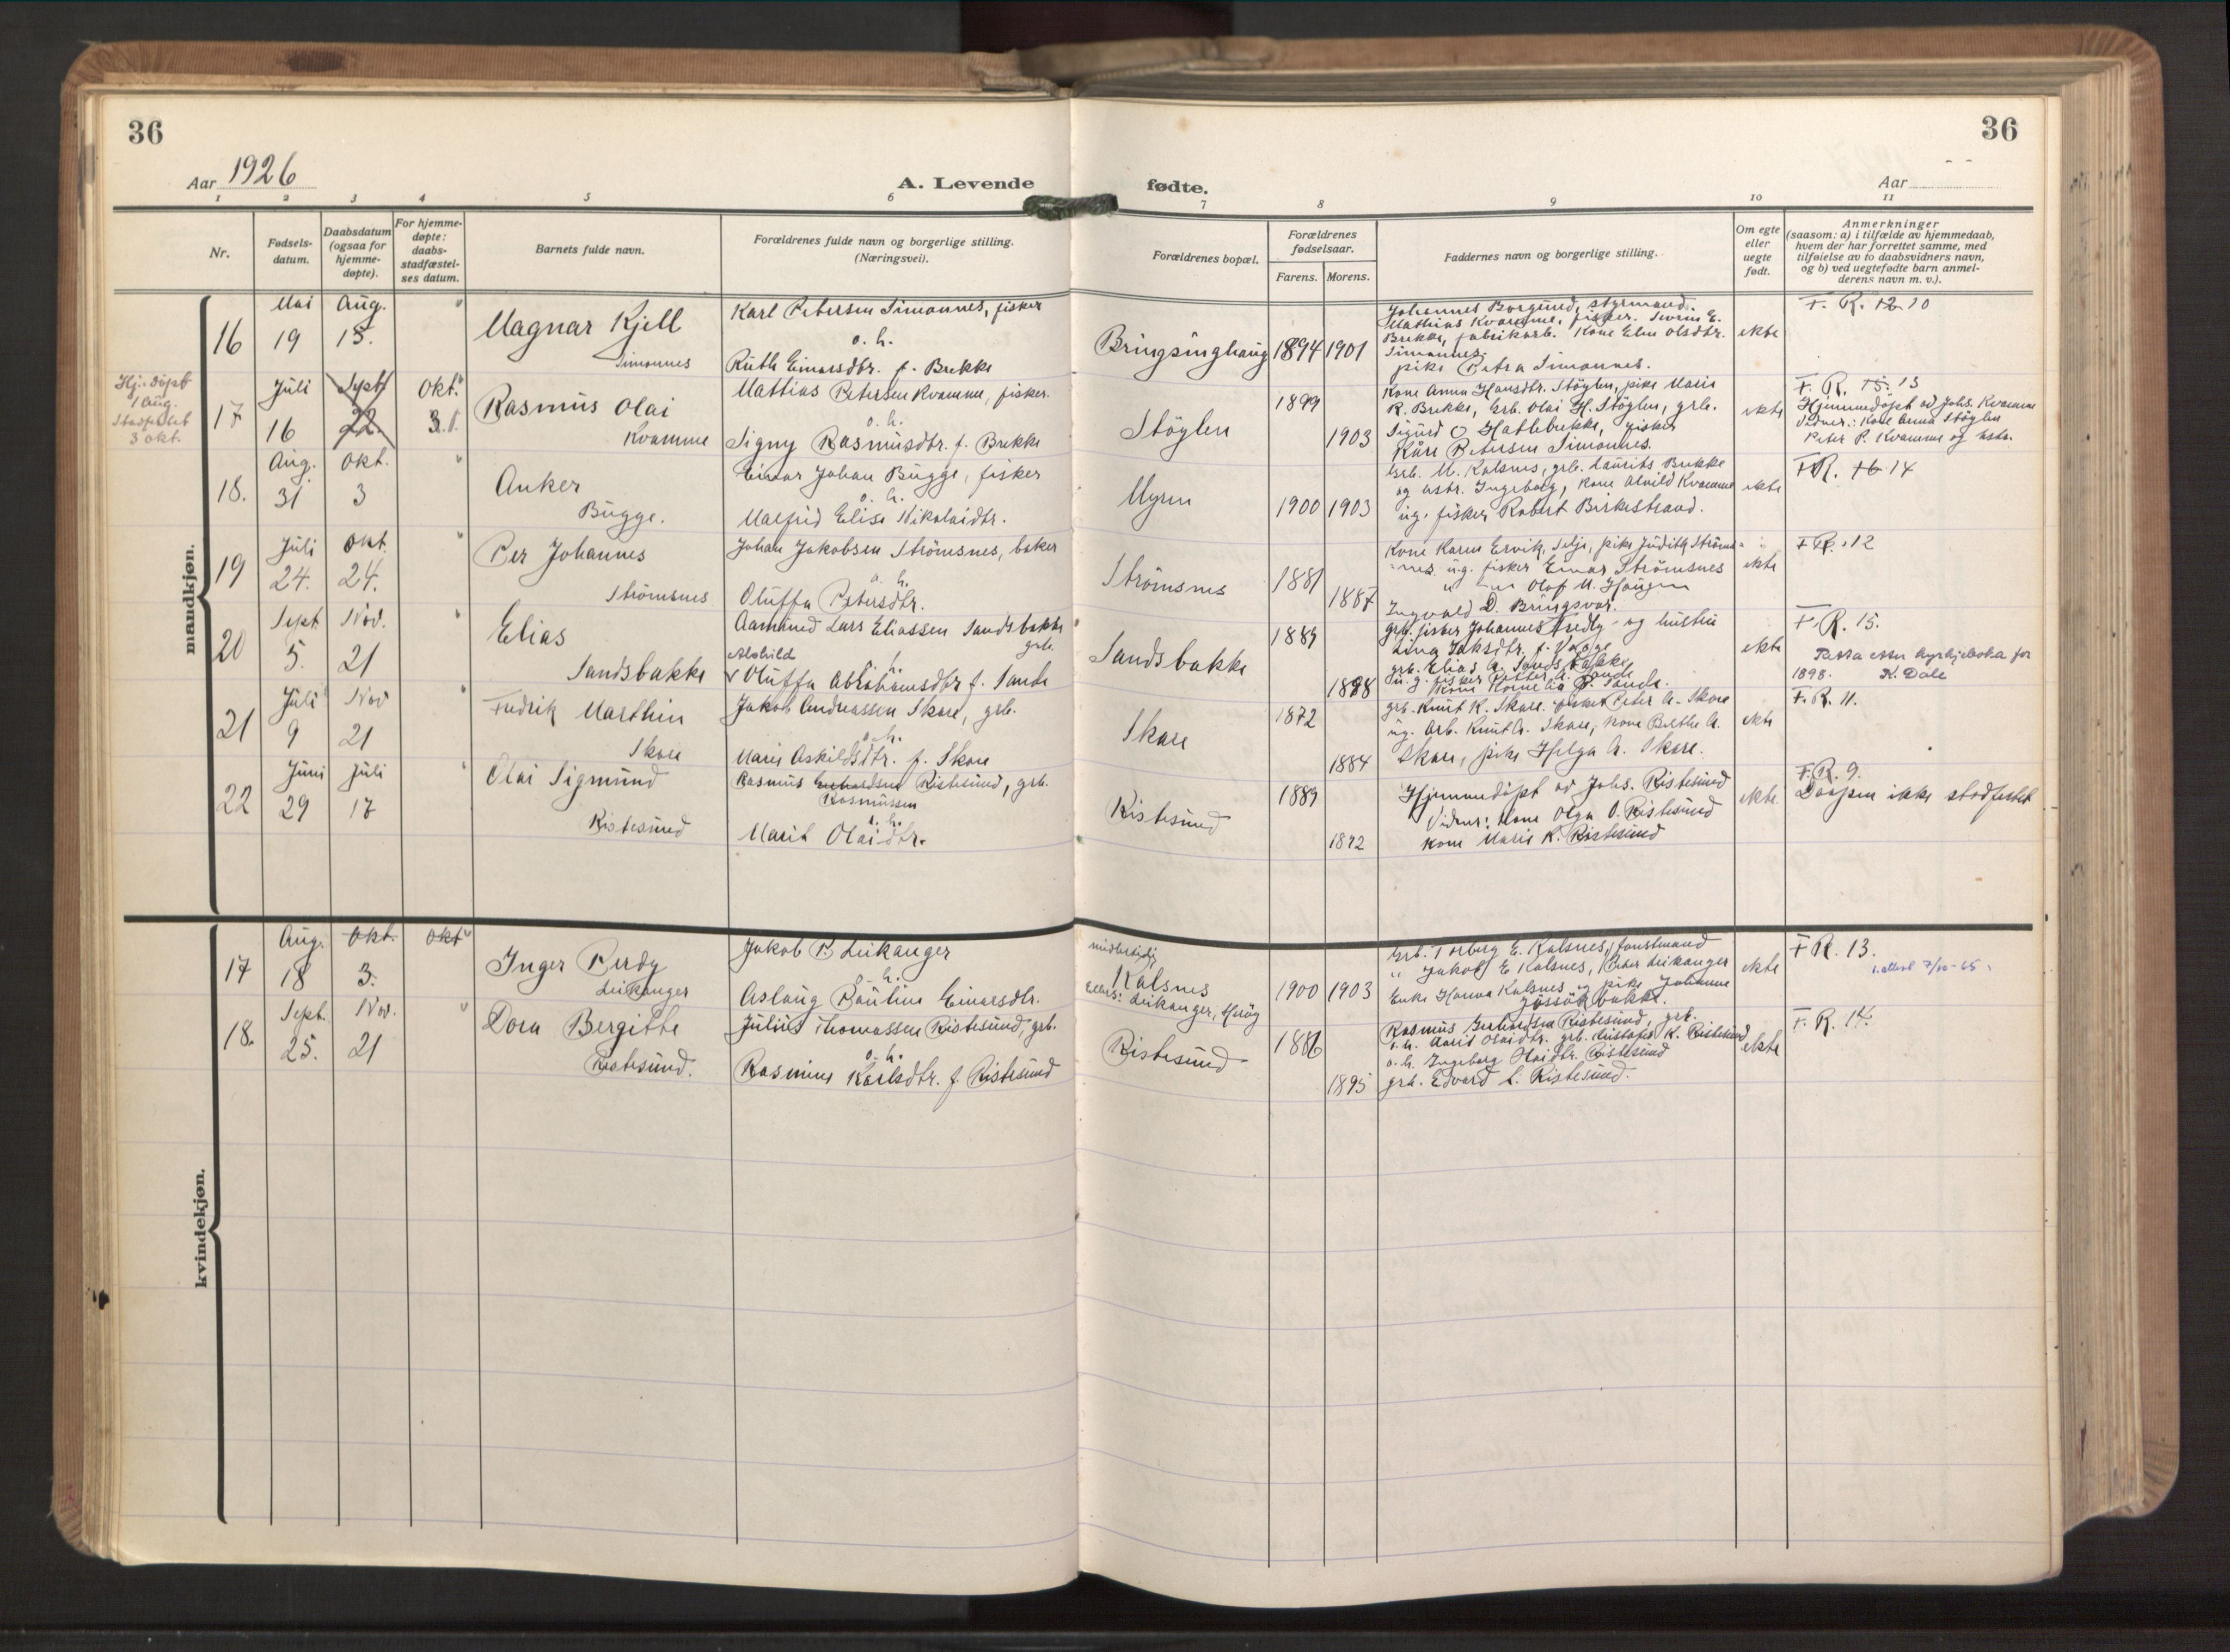 36
36
Aar 1926
A. Levende fødte.
Aar
1 2 3 4 5 6 7 8 9 10 11
Nr.
Fødsels-
datum.
Daabsdatum
(ogsaa for
hjemme-
døpte).
For hjemme-
døpte:
daabs-
stadfæstel-
ses datum.
Barnets fulde navn.
Forældrenes fulde navn og borgerlige stilling.
(Næringsvei).
Forældrenes bopæl.
Forældrenes
fødselsaar.
Farens. Morens.
Faddernes navn og borgerlige stilling.
Om egte
eller
uegte
født.
Anmerkninger
(saasom: a) i tilfælde av hjemmedaab,
hvem der har forrettet samme, med
tilføielse av to daabsvidners navn,
og b) ved uegtefødte barn anmel-
derens navn m. v.).
mandkjøn.
16
Mai
19
Aug.
15.
"
Magnar Kjell
Simonnes
Karl Petersen Simonnes, fisker
o. h.
Ruth Einarsdtr. f. Brekke
Bringsinghaug
1894 1901
Johannes Borgund, styrmand.
Mathias Kvamme, fisker. Severin E.
Brekke, fabrikarb. Kone Elen Olsdtr.
Simonnes.
pike Petra Simonnes.
ekte
F. R. 12 10
Hj. döpt
1 Aug.
Stadfestet
3 okt.
17
Juli
16
Sept
22.
Okt.
3.
Rasmus Olai
Kvamme
Mattias Petersen Kvamme, fisker.
o. h.
Signy Rasmusdtr. f. Brekke
Stöylen
1899
1903
Kone Anna Hansdtr. Stöylen, pike Marie
R. Brekke, Grb. Olai H. Stöylen, grb.
Sigurd O Hatlebrekke, fisker
Kåre Petersen Simonnes.
ekte
F. R. 15. 13
Hjemmedöpt ad Johs. Kvamme
Vidner: Kone Anna Stöylen
Peter P. Kvamme og hstr.
18.
Aug.
31
Okt.
3
"
Anker
Bugge.
Einar Johan Bugge, fisker
o. h.
Malfrid Elise Nikolaidtr.
Myren
1900 1903
Grb. M. Kalsnes, grb. Laurits Brekke
og hstr. Ingeborg, Kone Alvild Kvamme
ug. fisker Robert Birkestrand.
ekte
F R. 16 14
19
Juli
24.
Okt.
24.
"
Per Johannes
Strömsnes
Johan Jakobsen Strömsnes, baker
o. h.
Oluffa Petersdtr.
Strömsnes
1881
1887
Kone Karen Ervik, Selje, pike Judith Ströms-
nes. ug. fisker Einar Strömsnes
" " Olaf M. Haugen
Ingvald D. Bringsvor.
ekte
F R. 12
20
Sept.
5.
Nov.
21
"
Elias
Sandsbakke
Aamund Lars Eliassen Sandsbakke
grb.
Alvhild
v Oluffa Abrahamsdtr f. Sande
o. h.
Sandsbakke
1889
1898
grb. fisker Johannes Fredly og hustru
Lina Jaksdtr. f. Voge
grb. Elias A. Sandsbakke
u. g. fisker Petter A. Sande
Kone Kornelia P. Sande.
ekte
F. R. 15.
Retta etter kyrkjeboka for
1898. K. Dale
21
Juli
9
Nov
21
"
Fredrik Marthin
Skare
Jakob Andreassen Skare, grb.
o. h.
Marie Askildsdtr. f. Skare
Skare
1872
1884
grb. Knut K. Skare. fisker Peter A. Skare
ug. Arb. Knut A. Skare, kone Berthe A.
Skare, pike Helga A. Skare.
ekte
F. R. 11.
22
Juni
29
Juli
17
"
Olai Sigmund
Ristesund
Rasmus Gerhardsen Ristesund, grb.
Rasmussen
o. h.
Marit Olaidtr.
Ristesund
1889
1892
Hjemmedöpt ad Johs. Ristesund
Vidner: Kone Olga O. Ristesund
Kone Marie K. Ristesund
ekte.
F. R. 9.
Daapen ikke stadfestet
kvindekjøn.
17
Aug.
18
Okt.
3.
Okt
Inger Perdy
Leikanger
Jakob P. Leikanger
o. h.
Aslaug Pauline Einarsdtr.
midlertidig
Kalsnes
ellers: Leikanger, Heröy
1900 1903
Grb. Torberg E. Kalsnes, forstmand
" Jakob E Kalsnes, Peter Leikanger
Enke Hanna Kalsnes og pike Johanne
Gjessöybakke.
ekte
F R. 13.
1. attest 7/10-65
18.
Sept.
25.
Nov.
21
"
Dora Bergitte
Ristesund.
Julius Thomassen Ristesund, grb.
o. h.
Rasmine Karlsdtr. f. Ristesund
Ristesund
1886
1895
Rasmus Gerhardsen Ristesund, grb.
o. h. Marit Olaidtr. grb. Kristofer K. Ristesund
o. h. Ingeborg Olaidtr. Ristesund
grb. Edvard L. Ristesund.
ekte
F. R. 14.